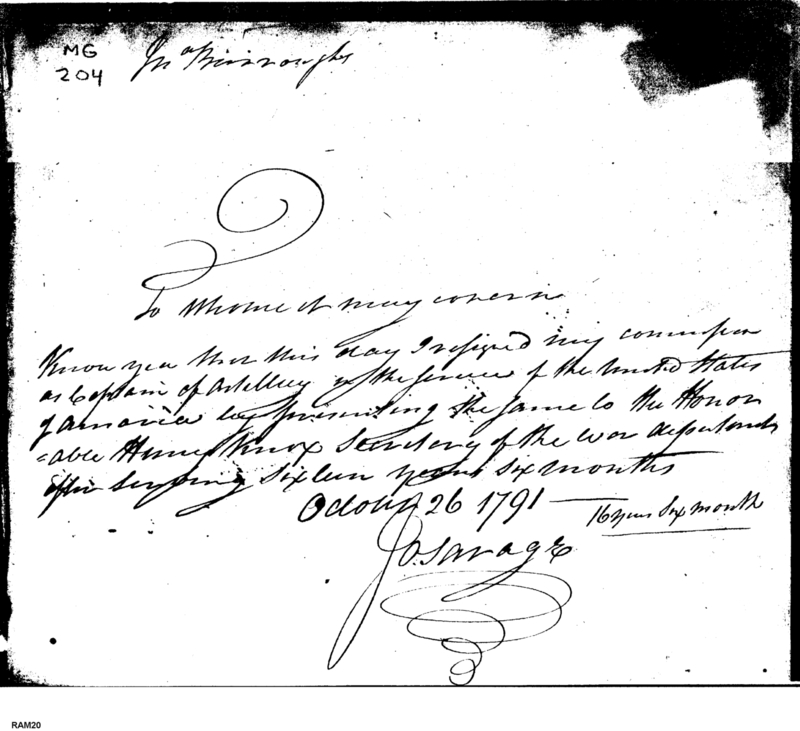 MG
204
Jnº Burroughs
To Whome it may concern
Know yea that this day I resigned my commission
as Captain of Artillery in the service of the United States
of amaria by presenting the same to the Honor
=able Henry Knox Secretary of the war department
after serving Sixteen years six months
October 26 1791
16 years Six month
Jo. Savage
RAM20